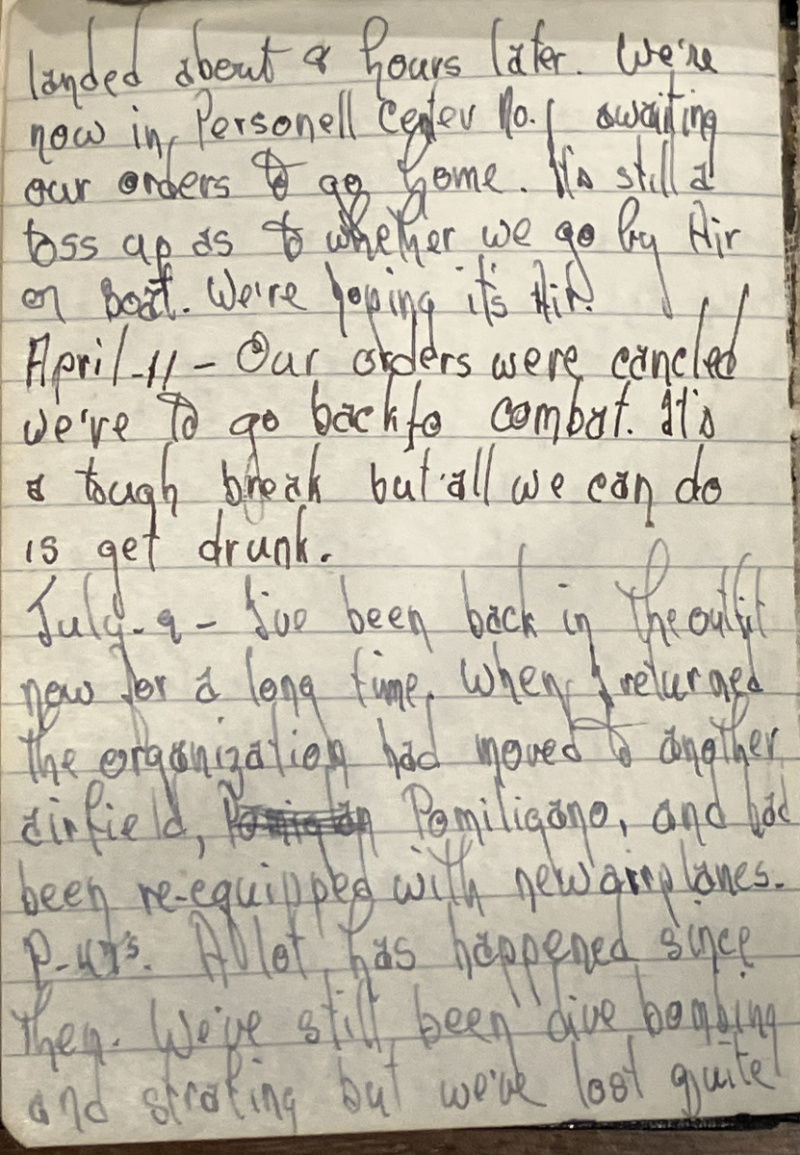 landed about 8 hours later. We're
now in Personell Center No. 1 awaiting
our orders to go home. It's still a
toss up as to whether we go by Air
or Boat. We're hoping it's Air.
April-11 - Our orders were cancled
we're to go back to combat. It's
a tough break but all we can do
is get drunk.
July-9 - I've been back in the outfit
now for a long time. When I returned
the organization had moved to another
airfield, Pomiligano, and had
been re-equipped with new airplanes.
P-47's. A lot has happened since
then. We've still been dive bombing
and strafing but we've lost quite